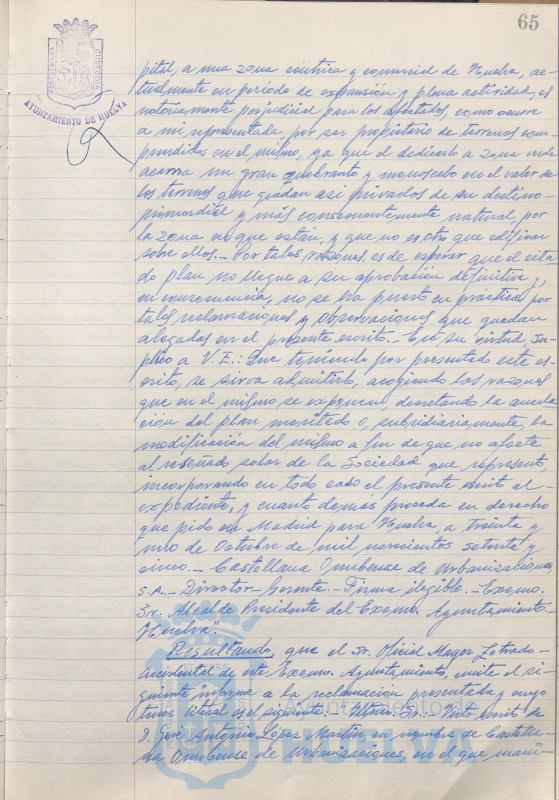 65
AYUNTAMIENTO DE HUELVA
pital, a una zona céntrica y comercial de Huelva, ac-
tualmente en período de expansión y plena actividad, es
notoriamente perjudicial para los afectados, como ocurre
a mi representada, por ser propietario de terrenos com-
prendidos en el mismo, ya que el dedicarlo a zona verde
acarrea un gran quebranto y menoscabo en el valor de
los terrenos que quedan así privados de su destino
primordial y más consecuentemente natural, por
la zona en que están, y que no es otro que edificar
sobre ellos.- Por tales razones, es de esperar que el cita-
do plan no llegue a su aprobación definitiva y,
en consecuencia, no se lleva puesto en práctica por
tales reclamaciones y observaciones que quedan
alegadas en el presente escrito.- En su virtud, Su-
plico a V.E.: Que teniendo por presentado este es-
crito, se sirva admitirlo, acogiendo las razones
que en el mismo se exponen, decretando la anula-
ción del plan meritado o, subsidiariamente, la
modificación del mismo a fin de que no afecte
al reseñado solar de la Sociedad que represento,
incorporando en todo caso el presente escrito al
expediente, y cuanto demás proceda en derecho
que pido en Madrid para Huelva, a treinta y
uno de Octubre de mil novecientos setenta y
cinco.- Castellana Onubense de Urbanizaciones
S.A.- Director-Gerente.- Firma ilegible.- Excmo.
Sr. Alcalde Presidente del Excmo. Ayuntamiento.-
Huelva".
Resultando, que el Sr. Oficial Mayor Letrado
accidental de este Excmo. Ayuntamiento, emite el si-
guiente informe a la reclamación presentada y cuyo
tenor literal es el siguiente:- "Iltmo. Sr.- Visto escrito de
D. José Antonio López Martín, en nombre de Castella-
na Onubense de Urbanizaciones, en el que mani-